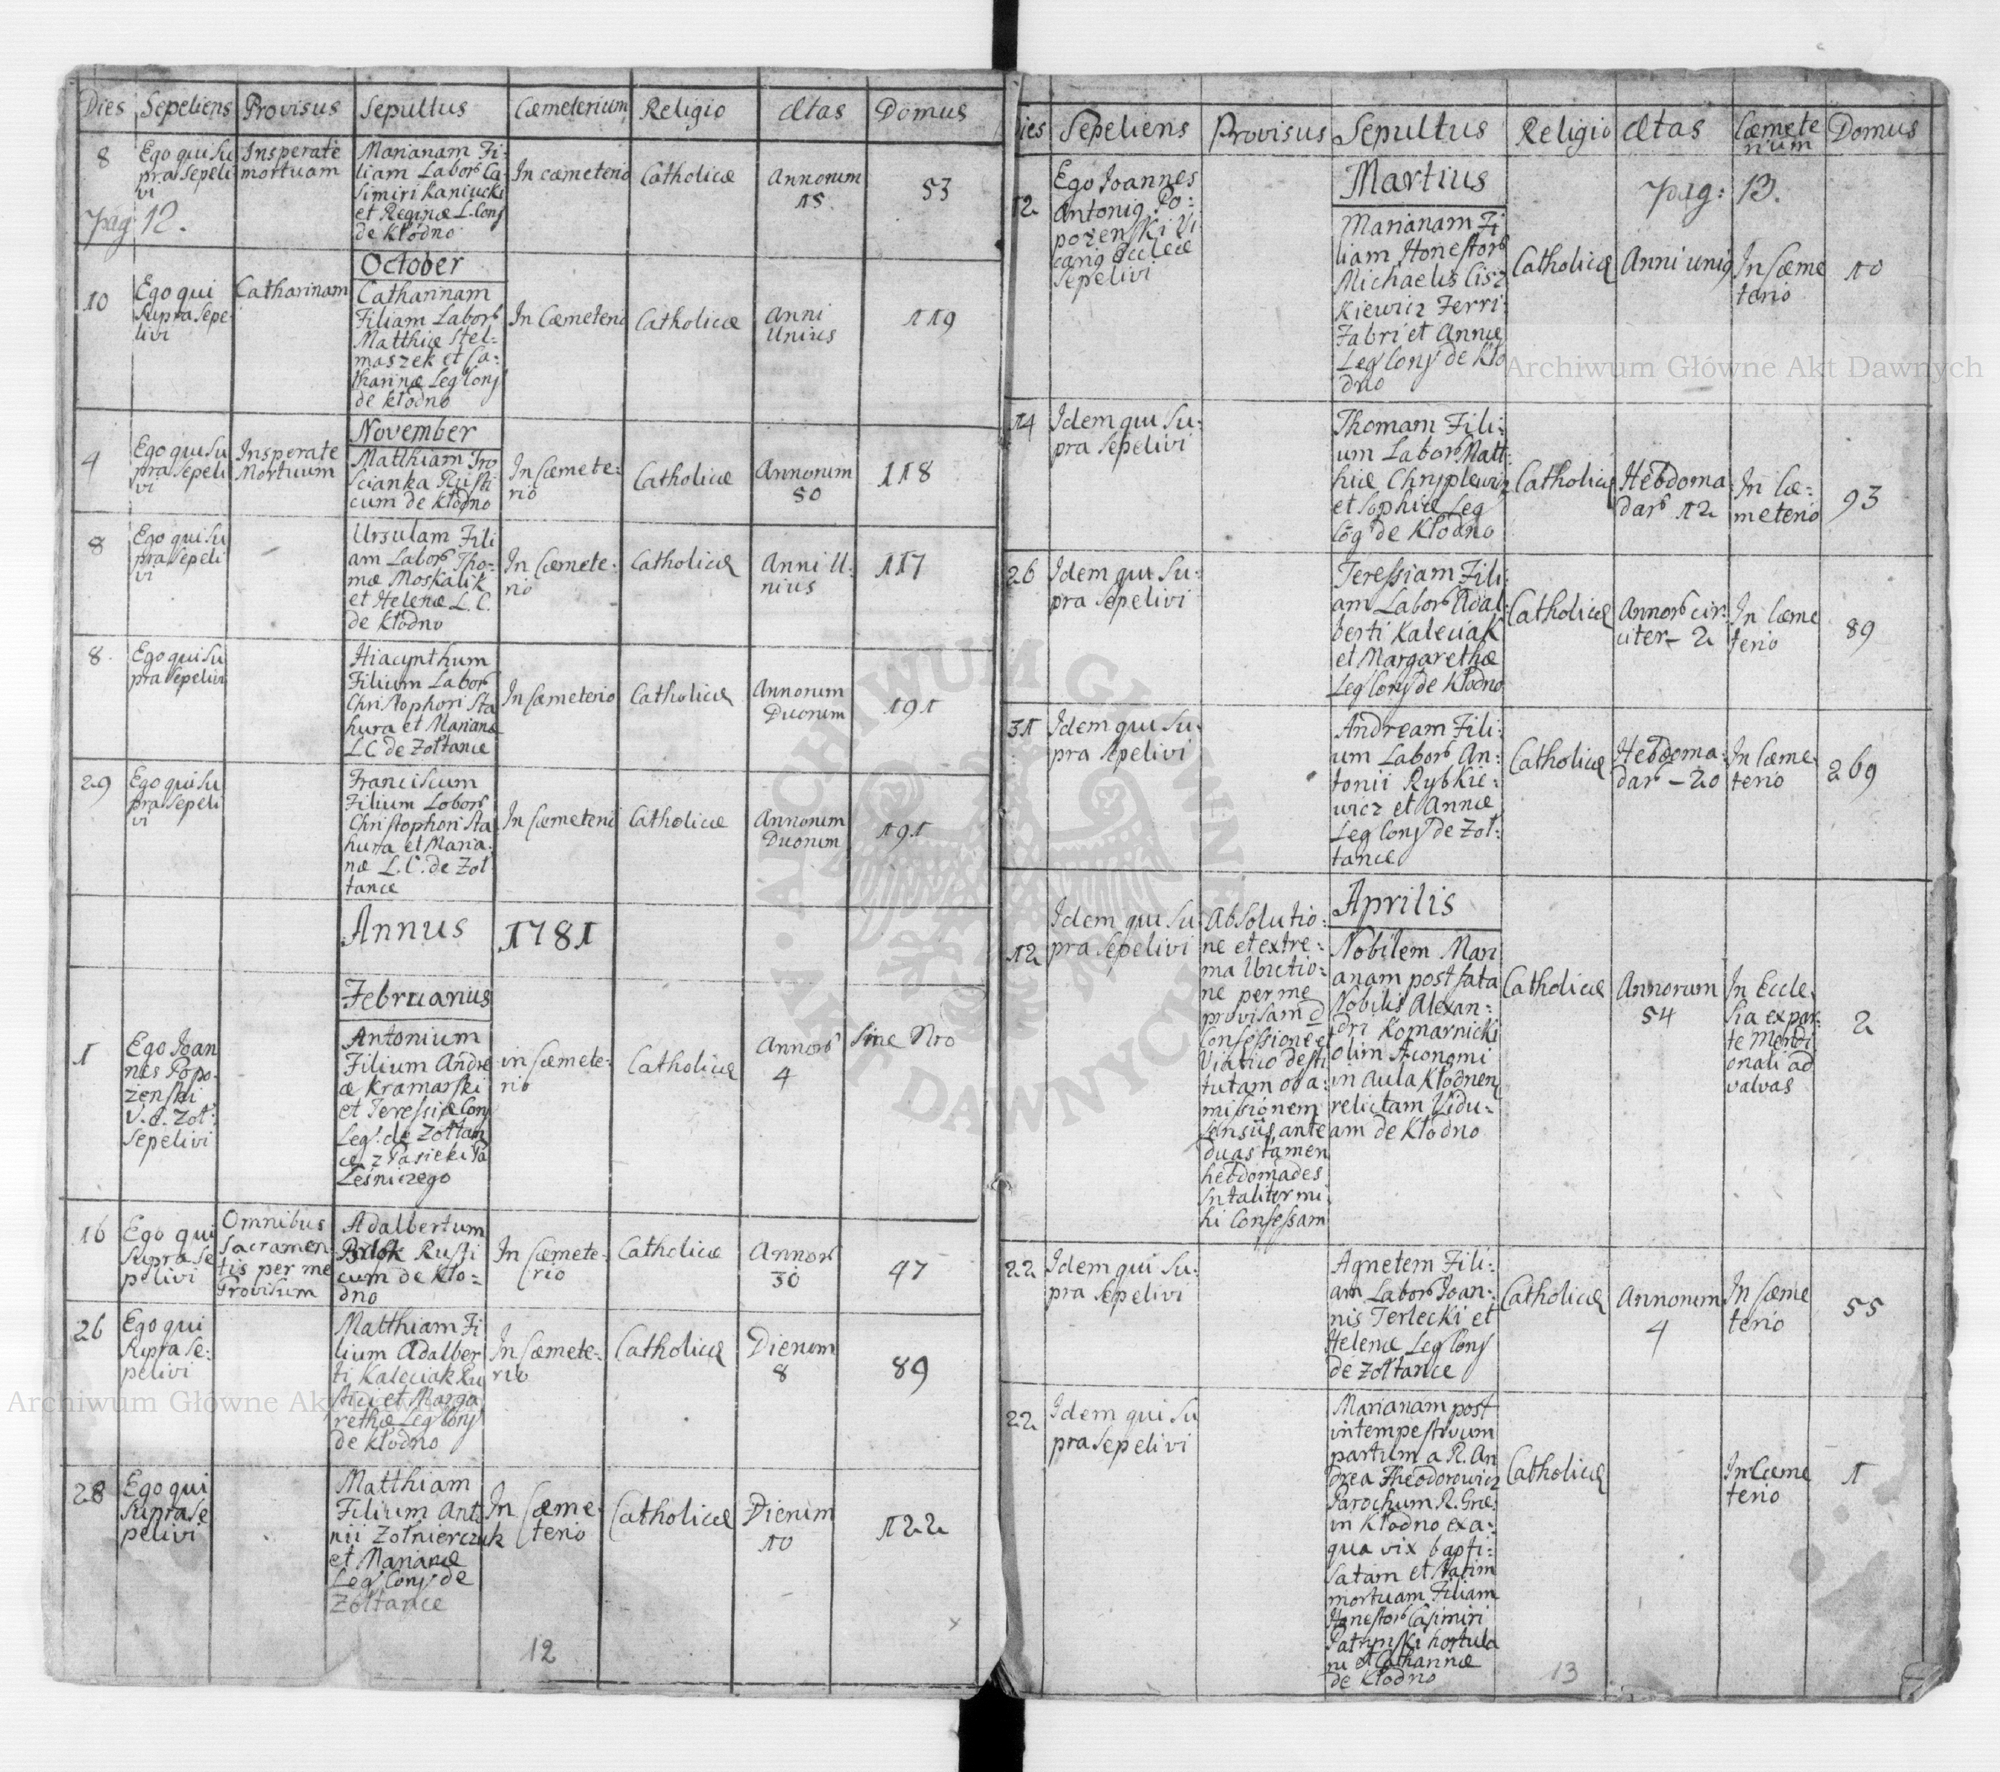 Dies Sepeliens Provisus Sepultus Cæmeterium Religio Ætas Domus
8
Ego qui Su
pra Sepeli
vi
Insperate
mortuam
Marianam Fi-
liam Labor Ca
simiri Kaniucki
et Reginæ L. Conj
de Kłodno
In cæmeterio
Catholicæ
Annorum
15
53
pag 12.
October
10
Ego qui
Supra Sepe-
livi
Catharinam
Catharinam
Filiam Labor
Matthiæ Stel-
maszek et Ca-
tharinæ Leg Conj
de Kłodno
In Cæmeterio
Catholicæ
Anni
Unius
119
November
4
Ego qui Su
pra Sepeli
vi
Insperate
Mortuum
Matthiam Tro
scianka Rusti
cum de Kłodno
In Cæmete-
rio
Catholicæ
Annorum
50
118
8
Ego qui Su
pra Sepeli
vi
Ursulam Fili
am Labor Tho-
mæ Moskalik
et Helenæ L. C.
de Kłodno
In Cæmete-
rio
Catholicæ
Anni U-
nius
117
8.
Ego qui Su
pra Sepelivi
Hiacynthum
Filium Labor
Christophori Sta
hura et Marianæ
L C de Zołtance
In Cæmeterio
Catholicæ
Annorum
Duorum
191
29
Ego qui Su
pra Sepeli
vi
Franciscum
Filium Lobor
Christophori Sta
hura et Maria-
næ L. C. de Zoł-
tance
In Cæmeterio
Catholicæ
Annorum
Duorum
191
Annus 1781
Februarius
1
Ego Joan
nes Popo-
żenski
V. E. Zoł.
Sepelivi
Antonium
Filium Andre
æ Kramarski
et Teressiæ Conj
Leg. de Zołtan
ce z Pasieki Pa
Leśniczego
in Cæmete-
rio
Catholicæ
Annor
4
Sine Nro
16
Ego qui
Supra Se
pelivi
Omnibus
Sacramen-
tis per me
Provisum
Adalbertum
Rusti
cum de Kło-
dno
In Cæmete-
rio
Catholicæ
Annor
30
47
26
Ego qui
Supra Se-
pelivi
Matthiam Fi
lium Adalber
ti Kaleciak Ru
stici et Marga
rethæ Leg Conj
de Kłodno
In Cæmete-
rio
Catholicæ
Dierum
8
89
28
Ego qui
Supra Se
pelivi
Matthiam
Filium Anto
nii Zołnierczuk
et Marianæ
Leg Conj de
Zołtance
In Cæme-
terio
Catholicæ
Dierum
10
122
12
Dies Sepeliens Provisus Sepultus Religio Ætas Cæmete
rium Domus
Martius
pag: 13.
12
Ego Joannes
Antoni9 Po-
pożenski Vi
cari9 Eccleæ
Sepelivi
Marianam Fi
liam Honestor
Michaelis Cisz
kiewicz Ferri
Fabri et Annæ
Leg Conj de Kło
dno
Catholicæ
Anni uni9
In Cæme
terio
10
14
Idem qui Su-
pra Sepelivi
Thomam Fili-
um Labor Matt-
hiæ Chryplewicz
et Sophiæ Leg
Cog de Kłodno
Catholicæ
Hebdoma
dar 12
In Cæ-
meterio
93
26
Idem qui Su-
pra Sepelivi
Teressiam Fili
am Labor Adal-
berti Kaleciak
et Margarethæ
Leg Conj de Kłodno
Catholicæ
Annor cir-
citer - 2
In Cæme
terio
89
31
Idem qui Su-
pra Sepelivi
Andream Fili-
um Labor An-
tonii Rybkie-
wicz et Annæ
Leg Conj de Zoł-
tance
Catholicæ
Hebdoma-
dar - 20
In Cæme-
terio
269
Aprilis
12
Idem qui Su
pra Sepelivi
Absolutio-
ne et extre-
ma Unctio-
ne per me
provisam
Confessione et
Viatico desti
tutam ob a-
missionem
sensus, ante
duas tamen
hebdomades
mi
hi Confessam
Nobilem Mari
anam post fata
Nobilis Alexan-
dri Komarnicki
olim Æconomi
in Aula Kłodnen
relictam Vidu-
am de Kłodno
Catholicæ
Annorum
54
In Eccle-
sia ex par-
te Meridi
onali ad
valvas
2
22
Idem qui Su-
pra Sepelivi
Agnetem Fili-
am Labor Joan-
nis Terlecki et
Helenæ Leg Conj
de Zołtance
Catholicæ
Annorum
4
In Cæme
terio
55
22
Idem qui Su
pra Sepelivi
Marianam post
intempestivum
partum a R. An
drea Theodorowicz
Parochum R. Græ
in Kłodno ex a-
qua vix bapti-
satam et statim
mortuam Filiam
Honestor Casimiri
Patrynski hortula
ni et Catharinæ
de Kłodno
Catholicæ
In Cæme
terio
1
13
Archiwum Główne Akt Dawnych
Archiwum Główne Akt Dawnych
ARCHIWUM GŁÓWNE
AKT DAWNYCH